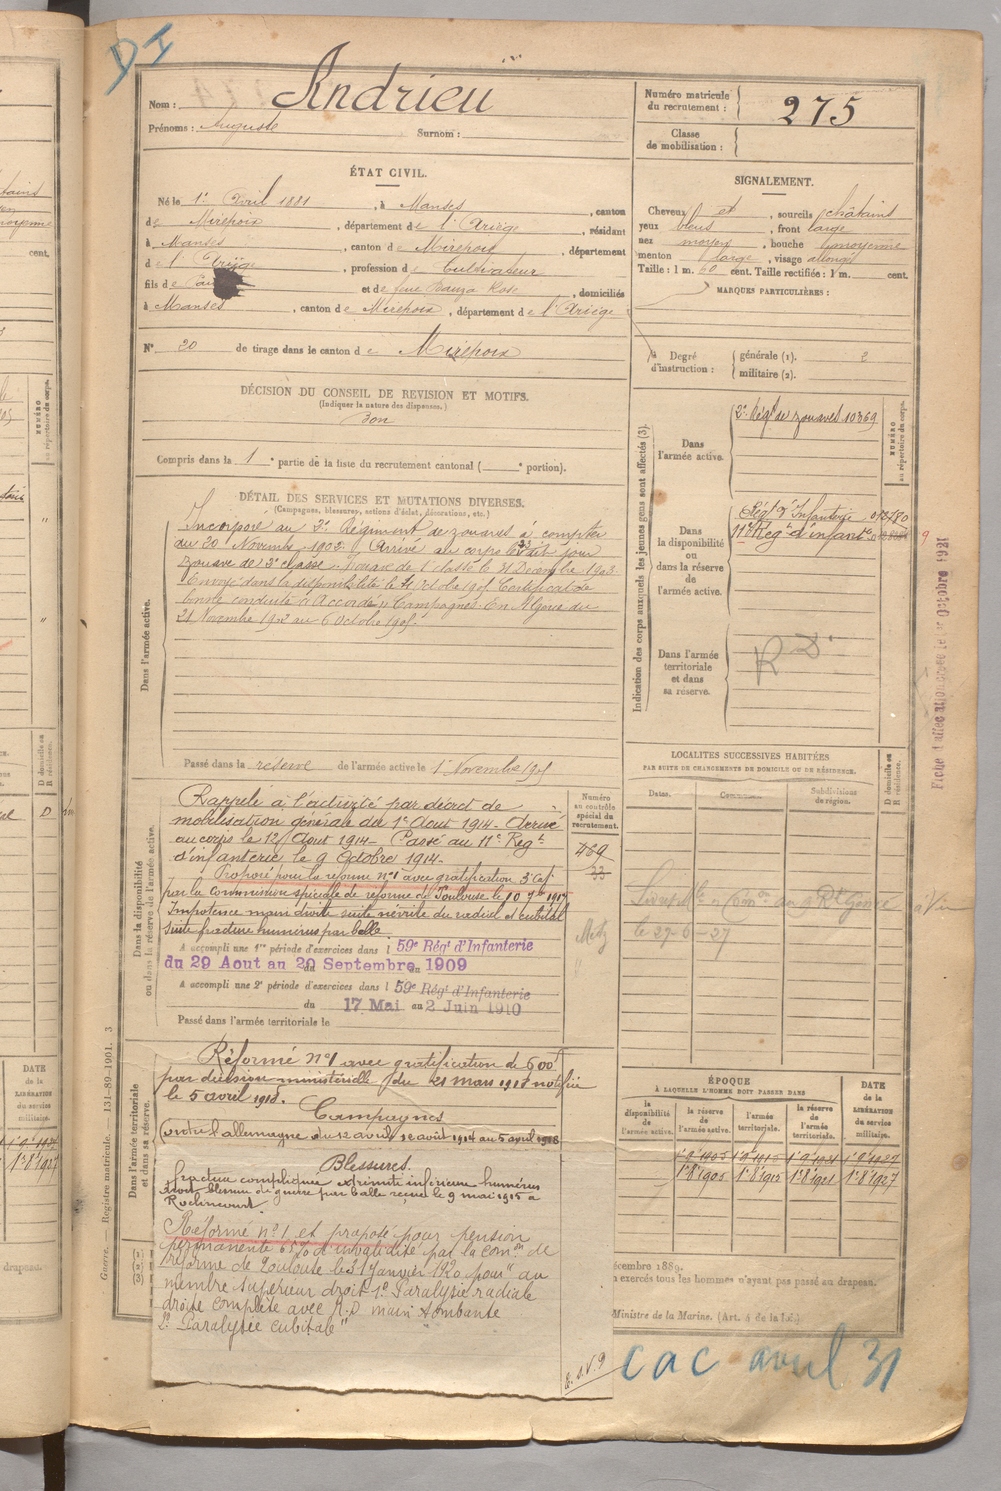 DI
Nom : Andrieu
Prénoms : Auguste Surnom :
Numéro matricule du recrutement : 275
Classe de mobilisation :
ÉTAT CIVIL.
Né le 1er Avril 1881, à Manses, canton
de Mirepoix, département de l'Ariège, résidant
à Manses, canton de Mirepoix, département
de l'Ariège, profession de Cultivateur
fils de et de feue Rose, domiciliés
à Manses, canton de Mirepoix, département de l'Ariège
N° 20 de tirage dans le canton de Mirepoix
SIGNALEMENT.
Cheveux et, sourcils châtains
yeux bleus, front large
nez moyen, bouche moyenne
menton large, visage allongé
Taille : 1 m. 60 cent. Taille rectifiée : 1 m. cent.
MARQUES PARTICULIÈRES :
Degré d'instruction : générale (1). 2
militaire (2).
DÉCISION DU CONSEIL DE REVISION ET MOTIFS.
(Indiquer la nature des dispenses.)
Bon
Compris dans la 1e partie de la liste du recrutement cantonal ( e portion).
DÉTAIL DES SERVICES ET MUTATIONS DIVERSES.
(Campagnes, blessures, actions d'éclat, décorations, etc.)
Dans l'armée active.
Incorporé au 2e Régiment de zouaves à compter
du 20 Novembre 1902. Arrivé au corps le dit jour
zouave de 2e classe. Zouave de 1e classe le 31 Décembre 1903.
Envoyé dans la disponibilité le Certificat de
bonne conduite "Accordé". Campagnes: En Algérie du
21 Novembre 1902 au 6 Octobre 1905.
Passé dans la réserve de l'armée active le 1er Novembre 1905
Indication des corps auxquels les jeunes gens sont affectés (3).
NUMÉRO au répertoire du corps.
Dans l'armée active.
2e Régt de zouaves 10369
Dans la disponibilité ou dans la réserve de l'armée active.
Régt d'Infanterie
11e Régt d'infantie
Dans l'armée territoriale et dans sa réserve.
R D
Fiche d'affectation créée le 1er Octobre 1921
LOCALITES SUCCESSIVES HABITÉES
PAR SUITE DE CHANGEMENTS DE DOMICILE OU DE RÉSIDENCE.
Dates. Communes. Subdivisions de région.
D domicile ou R résidence.
le 27-6-27
Dans la disponibilité ou dans la réserve de l'armée active.
Numéro au contrôle spécial du recrutement.
469
33
Metz
Rappelé à l'activité par décret de
mobilisation générale du 1er Aout 1914. Arrivé
au corps le 12 Aout 1914. Passé au 11e Régt
d'infanterie le 9 Octobre 1914.
Proposé pour la réforme n°1 avec gratification 3e caté
par la commission spéciale de réforme de Toulouse le 10 7bre 1917
Impotence main droite suite névrite du radial et cubital
suite fracture humérus par balle
A accompli une 1re période d'exercices dans l 59e Régt d'Infanterie
du 29 Aout au 20 Septembre 1909
A accompli une 2e période d'exercices dans l 59e Régt d'Infanterie
du 17 Mai au 2 Juin 1910
Passé dans l'armée territoriale le
Dans l'armée territoriale et dans sa réserve.
Réformé n°1 avec gratification de 500f
par décision ministérielle du 21 mars 1918 notifiée
le 5 avril 1918.
Campagnes
Contre l'allemagne du 12 août 1914 au 5 avril 1918
Blessures.
fracture compliquée extrémité inférieure humérus
blessure de guerre par balle reçue le 9 mai 1915 à
Roclincourt.
Réformé n°1 et proposé pour pension
permanente 65% d'invalidité par la comon de
réforme de Toulouse le 31 janvier 1920 pour "au
membre supérieur droit 1° Paralysie radiale
droite complète avec R.D main tombante
2° Paralysie cubitale"
ÉPOQUE
À LAQUELLE L'HOMME DOIT PASSER DANS
la disponibilité de l'armée active. la réserve de l'armée active. l'armée territoriale. la réserve de l'armée territoriale.
DATE de la LIBÉRATION du service militaire.
1er 8bre 1905 1er 8bre 1912 1er 8bre 1921 1er 8bre 1927
décembre 1889.
exercés tous les hommes n'ayant pas passé au drapeau.
Ministre de la Marine. (Art. 4 de la Loi.)
cac avril 31
Guerre. — Registre matricule. — 131-89-1901. 3